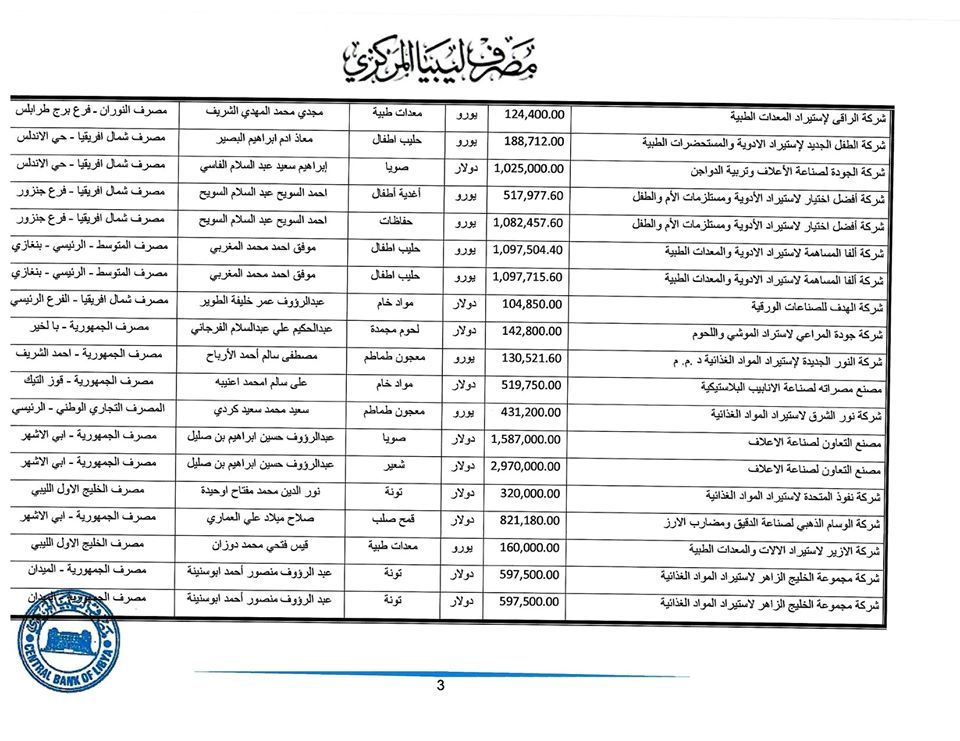 مصرف ليبيا المركزي
شركة الراقى لإستيراد المعدات الطبية 124,400.00 يورو معدات طبية مجدي محمد المهدي الشريف مصرف النوران - فرع برج طرابلس
شركة الطفل الجديد لإستيراد الادوية والمستحضرات الطبية 188,712.00 يورو حليب اطفال معاذ ادم ابراهيم البصير مصرف شمال افريقيا - حي الاندلس
شركة الجودة لصناعة الأعلاف وتربية الدواجن 1,025,000.00 دولار صويا إبراهيم سعيد عبد السلام الفاسي مصرف شمال افريقيا - حي الاندلس
شركة أفضل اختيار لاستيراد الأدوية ومستلزمات الأم والطفل 517,977.60 يورو أغدية أطفال احمد السويح عبد السلام السويح مصرف شمال افريقيا - فرع جنزور
شركة أفضل اختيار لاستيراد الأدوية ومستلزمات الأم والطفل 1,082,457.60 يورو حفاظات احمد السويح عبد السلام السويح مصرف شمال افريقيا - فرع جنزور
شركة ألفا المساهمة لاستيراد الادوية والمعدات الطبية 1,097,504.40 يورو حليب اطفال موفق احمد محمد المغربي مصرف المتوسط - الرئيسي - بنغازي
شركة ألفا المساهمة لاستيراد الادوية والمعدات الطبية 1,097,715.60 يورو حليب اطفال موفق احمد محمد المغربي مصرف المتوسط - الرئيسي - بنغازي
شركة الهدف للصناعات الورقية 104,850.00 دولار مواد خام عبدالرؤوف عمر خليفة الطوير مصرف شمال افريقيا - الفرع الرئيسي
شركة جودة المراعي لاستراد الموشي واللحوم 142,800.00 دولار لحوم مجمدة عبدالحكيم علي عبدالسلام الفرجاني مصرف الجمهورية - با لخير
شركة النور الجديدة لإستيراد المواد الغذائية د .م. م 130,521.60 يورو معجون طماطم مصطفى سالم أحمد الأرباح مصرف الجمهورية - احمد الشريف
مصنع مصراته لصناعة الانابيب البلاستيكية 519,750.00 دولار مواد خام على سالم امحمد اعنيبه مصرف الجمهورية - قوز التيك
شركة نور الشرق لاستيراد المواد الغذائية 431,200.00 يورو معجون طماطم سعيد محمد سعيد كردي المصرف التجاري الوطني - الرئيسي
مصنع التعاون لصناعة الاعلاف 1,587,000.00 دولار صويا عبدالرؤوف حسين ابراهيم بن صليل مصرف الجمهورية - ابي الاشهر
مصنع التعاون لصناعة الاعلاف 2,970,000.00 دولار شعير عبدالرؤوف حسين ابراهيم بن صليل مصرف الجمهورية - ابي الاشهر
شركة نفوذ المتحدة لاستيراد المواد الغذائية 320,000.00 دولار تونة نور الدين محمد مفتاح اوحيدة مصرف الخليج الاول الليبي
شركة الوسام الذهبي لصناعة الدقيق ومضارب الارز 821,180.00 دولار قمح صلب صلاح ميلاد علي العماري مصرف الجمهورية - ابي الاشهر
شركة الازير لاستيراد الالات والمعدات الطبية 160,000.00 يورو معدات طبية قيس فتحي محمد دوزان مصرف الخليج الاول الليبي
شركة مجموعة الخليج الزاهر لاستيراد المواد الغذائية 597,500.00 دولار تونة عبد الرؤوف منصور أحمد ابوسنينة مصرف الجمهورية - الميدان
شركة مجموعة الخليج الزاهر لاستيراد المواد الغذائية 597,500.00 دولار تونة عبد الرؤوف منصور أحمد ابوسنينة مصرف الجمهورية - الميدان
مصرف ليبيا المركزي
CENTRAL BANK OF LIBYA
3